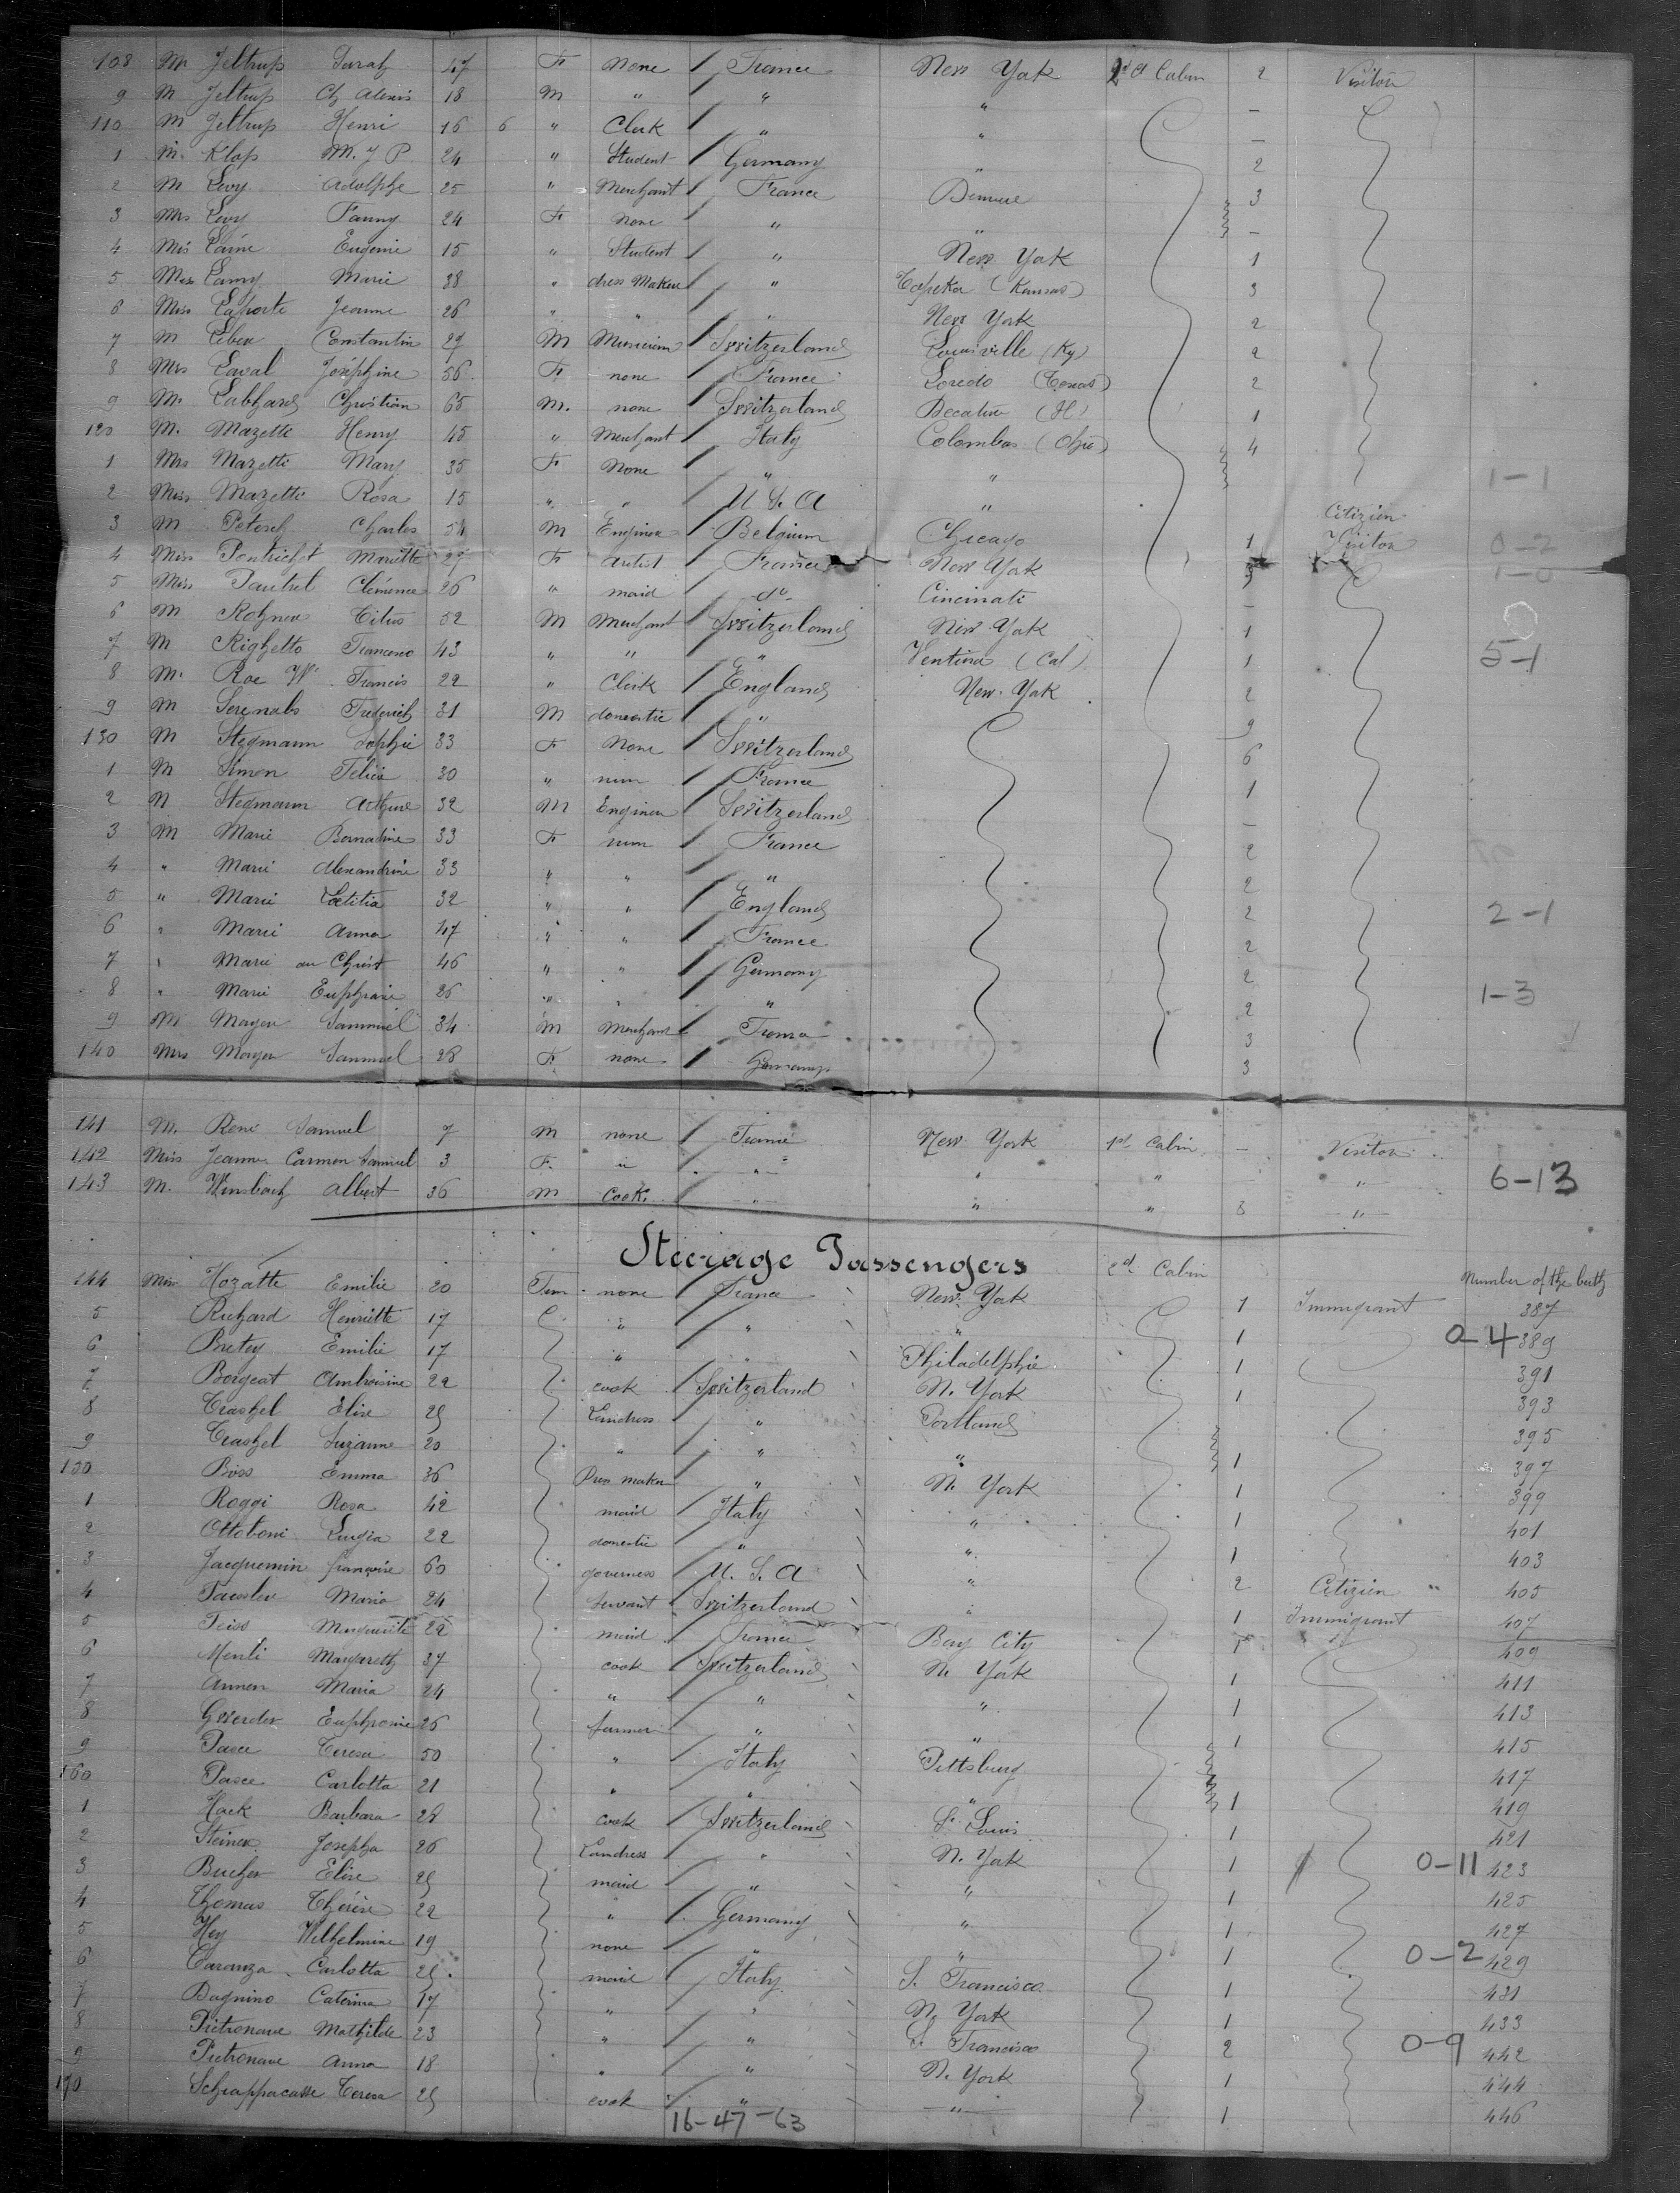 108 M Jeltrup Sarah 47 F none France New York 2d Cabin 2 Visitor
9 M Jeltrup Ch Alexis 18 M " " " —
110 M Jeltrup Henri 16 6 " Clerk " " —
1 M. Klop M. J P 24 " Student Germany " 2
2 M Levy Adolphe 25 " Merchant France Denver 3
3 Mrs Levy Fanny 24 F none " " —
4 Mis Laine Eugenie 15 " Student " New York 1
5 Mes Lamy Marie 38 " dress Maker " Topeka (Kansas) 3
6 Miss Laporte Jeanne 26 " " " New York 2
7 M Leber Constantin 27 M Musicien Switzerland Louisville (Ky) 2
8 Mrs Laval Joséphine 56 F none France Loredo (Texas) 2
9 M. Labhard Christian 65 M. none Switzerland Decatur (Il) 1
120 M. Mazette Henry 45 " Merchant Italy Colombus (Ohio) 4
1 Mrs Mazetti Mary 35 F None " "
1-1
2 Miss Mazetti Rosa 15 " " U. S. A " Citizien
3 M Petersch Charles 54 M Engineer Belgium Chicago 1 Visitor 0-2
4 Miss Pontrichet Mariette 29 F artist France New York 3 1-0
5 Miss Pautrel Clémence 26 " maid do Cincinati —
6 M Rohner Titus 52 M Merchant Switzerland New York 1
7 M Righetto Francesco 43 " " " Ventura (Cal) 1 5-1
8 M. Roe W. Francis 22 " Clerk England New York 2
9 M Serenabs Frederich 31 M domestic " 9
130 M Stegmann Sophie 33 F None Switzerland 6
1 M Simon Félicie 30 " nun France 1
2 M Stegmann Arthure 32 M Engineer Switzerland —
3 M Marie Bernadine 33 F nun France 2
4 " Marie Alexandrine 33 " " " 2
5 " Marie Lætitia 32 " " England 2 2-1
6 " Marie Anna 47 " " France 2
7 " Marie au Christ 46 " " Germany 2
8 " Marie Euphrasie 26 " " " 2 1-3
9 M Mayer Sammuel 34 M Merchant France 3
140 Mrs Mayer Sammuel 28 F. none Germany 3
141 M. René Samuel 7 M none France New York 1st Cabin — Visitor
142 Miss Jeanne Carmen Samuel 3 F. " " " " — "
143 M. Winsbach Albert 36 M Cook. " " " 8 " 6-13
Steerage Passengers
144 Miss Hozatte Emilie 20 Fem. none France New York 2d Cabin 1 Immigrant Number of the berth 387
5 Richard Henriette 17 " " " 1 0-4 389
6 Bretey Emilie 17 " " Philadelphie 1 391
7 Borgeat Ambroisine 22 cook Switzerland N. York 1 393
8 Traschel Elise 25 Laundress " Portland 395
9 Traschel Suzanne 20 " " " 1 397
150 Böss Emma 36 Dress maker " N. York 1 399
1 Roggi Rosa 42 maid Italy " 1 401
2 Ottoboni Luigia 22 domestic " " 1 403
3 Jacquemin françoise 60 governess U. S. A " 2 Citizien 405
4 Maria 24 servant Switzerland " 1 Immigrant 407
5 Teiss Marguerite 22 maid France Bay City 1 409
6 Menti Margareth 37 cook Switzerland N. York 1 411
7 Annen Maria 24 " " " 1 413
8 Gwerder Euphrosine 26 farmer " " 1 415
9 Pasce Teresa 50 " Italy Pittsburg 417
160 Pasce Carlotta 21 " " " 1 419
1 Hack Barbara 28 cook Switzerland St Louis 1 421
2 Steiner Josepha 26 Laundress " N. York 1 0-11 423
3 Bucher Elise 25 maid " " 1 425
4 Thomas Thérèse 22 " Germany " 1 427
5 Hey Wilhelmine 19 none " " 1 0-2 429
6 Caranza Carlotta 25 maid Italy S. Francisco 1 431
7 Bagnino Caterina 17 " " N. York 1 433
8 Pietronave Mathilde 23 " " S. Francisco 2 0-9 442
9 Pietronave Anna 18 " " N. York 1 444
170 Schiappacasse Teresa 25 cook " " 1 446
16-47-63